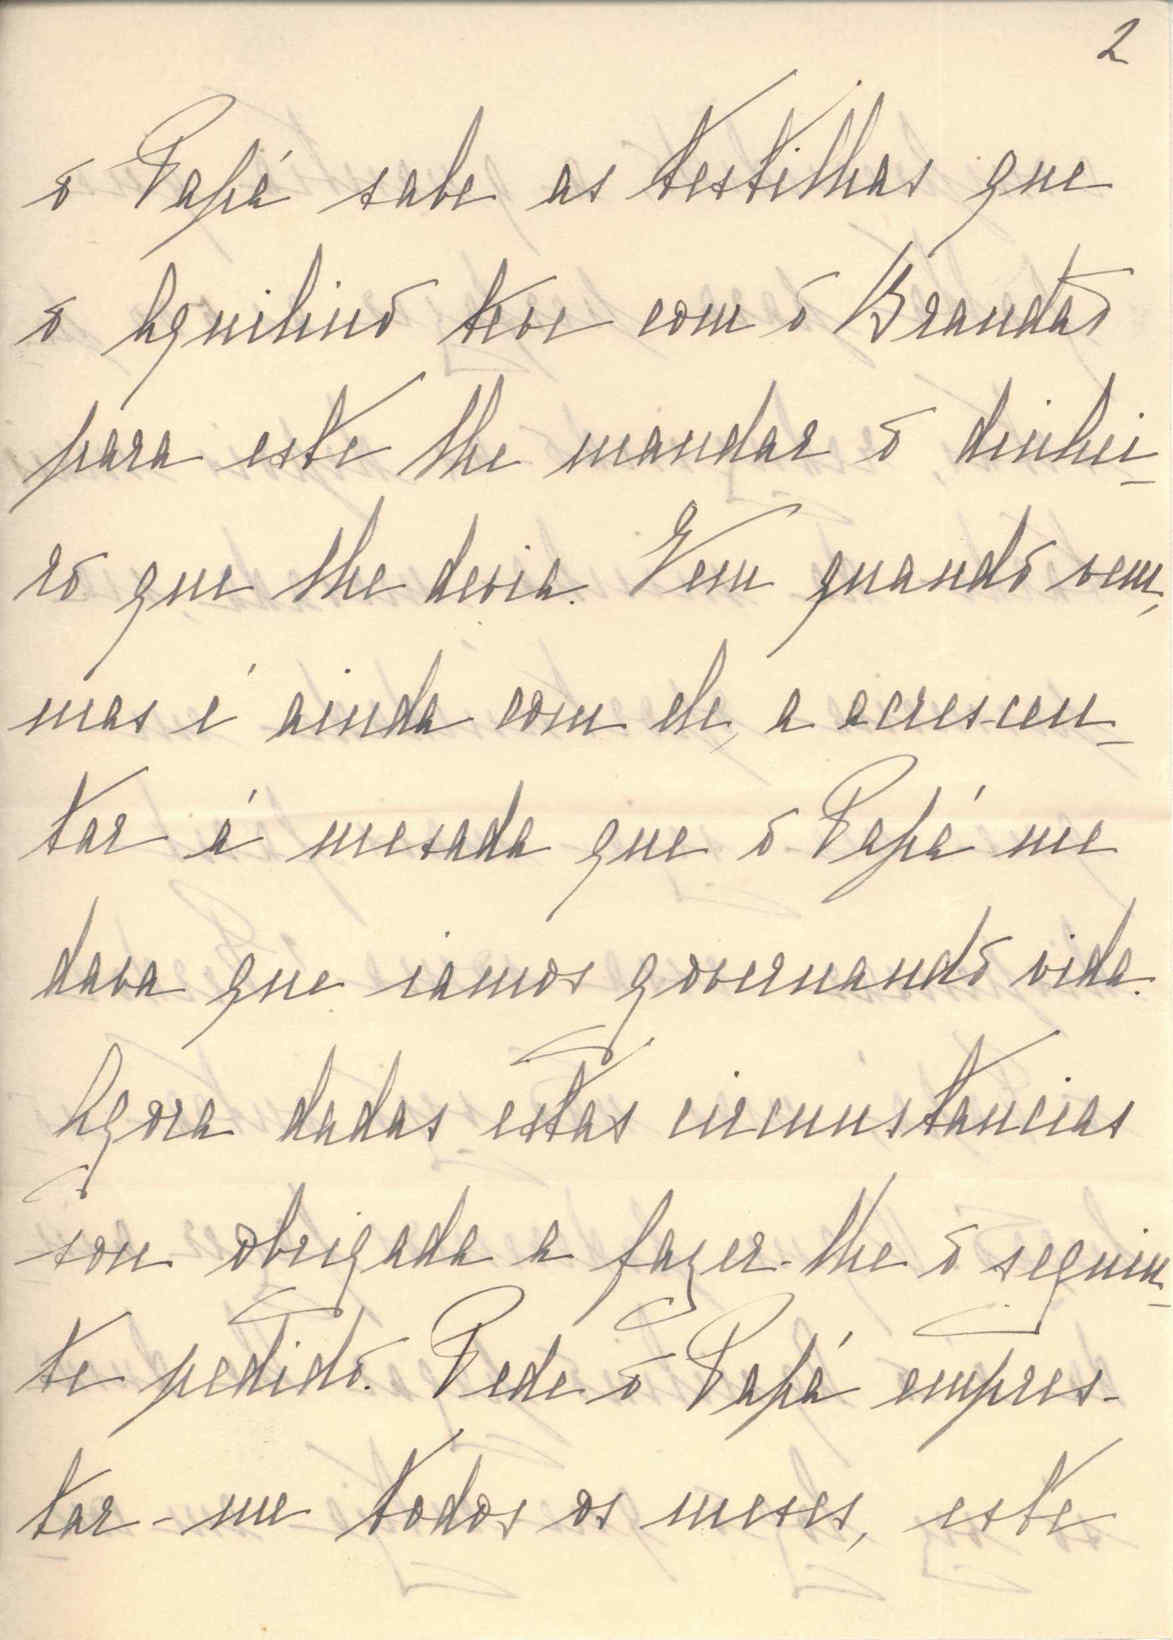 2
o Papá sabe as testilhas que
o Aquilino teve com o Brandão
para este lhe mandar o dinhei-
ro que lhe devia. Vem quando vem,
mas é ainda com ele, a acrescen-
tar á mesada que o Papá me
dava que iamos governando vida.
Agora dadas estas circunstancias
sou obrigada a fazer-lhe o seguin-
te pedido. Pede o Papá empres-
tar-me todos os meses, este